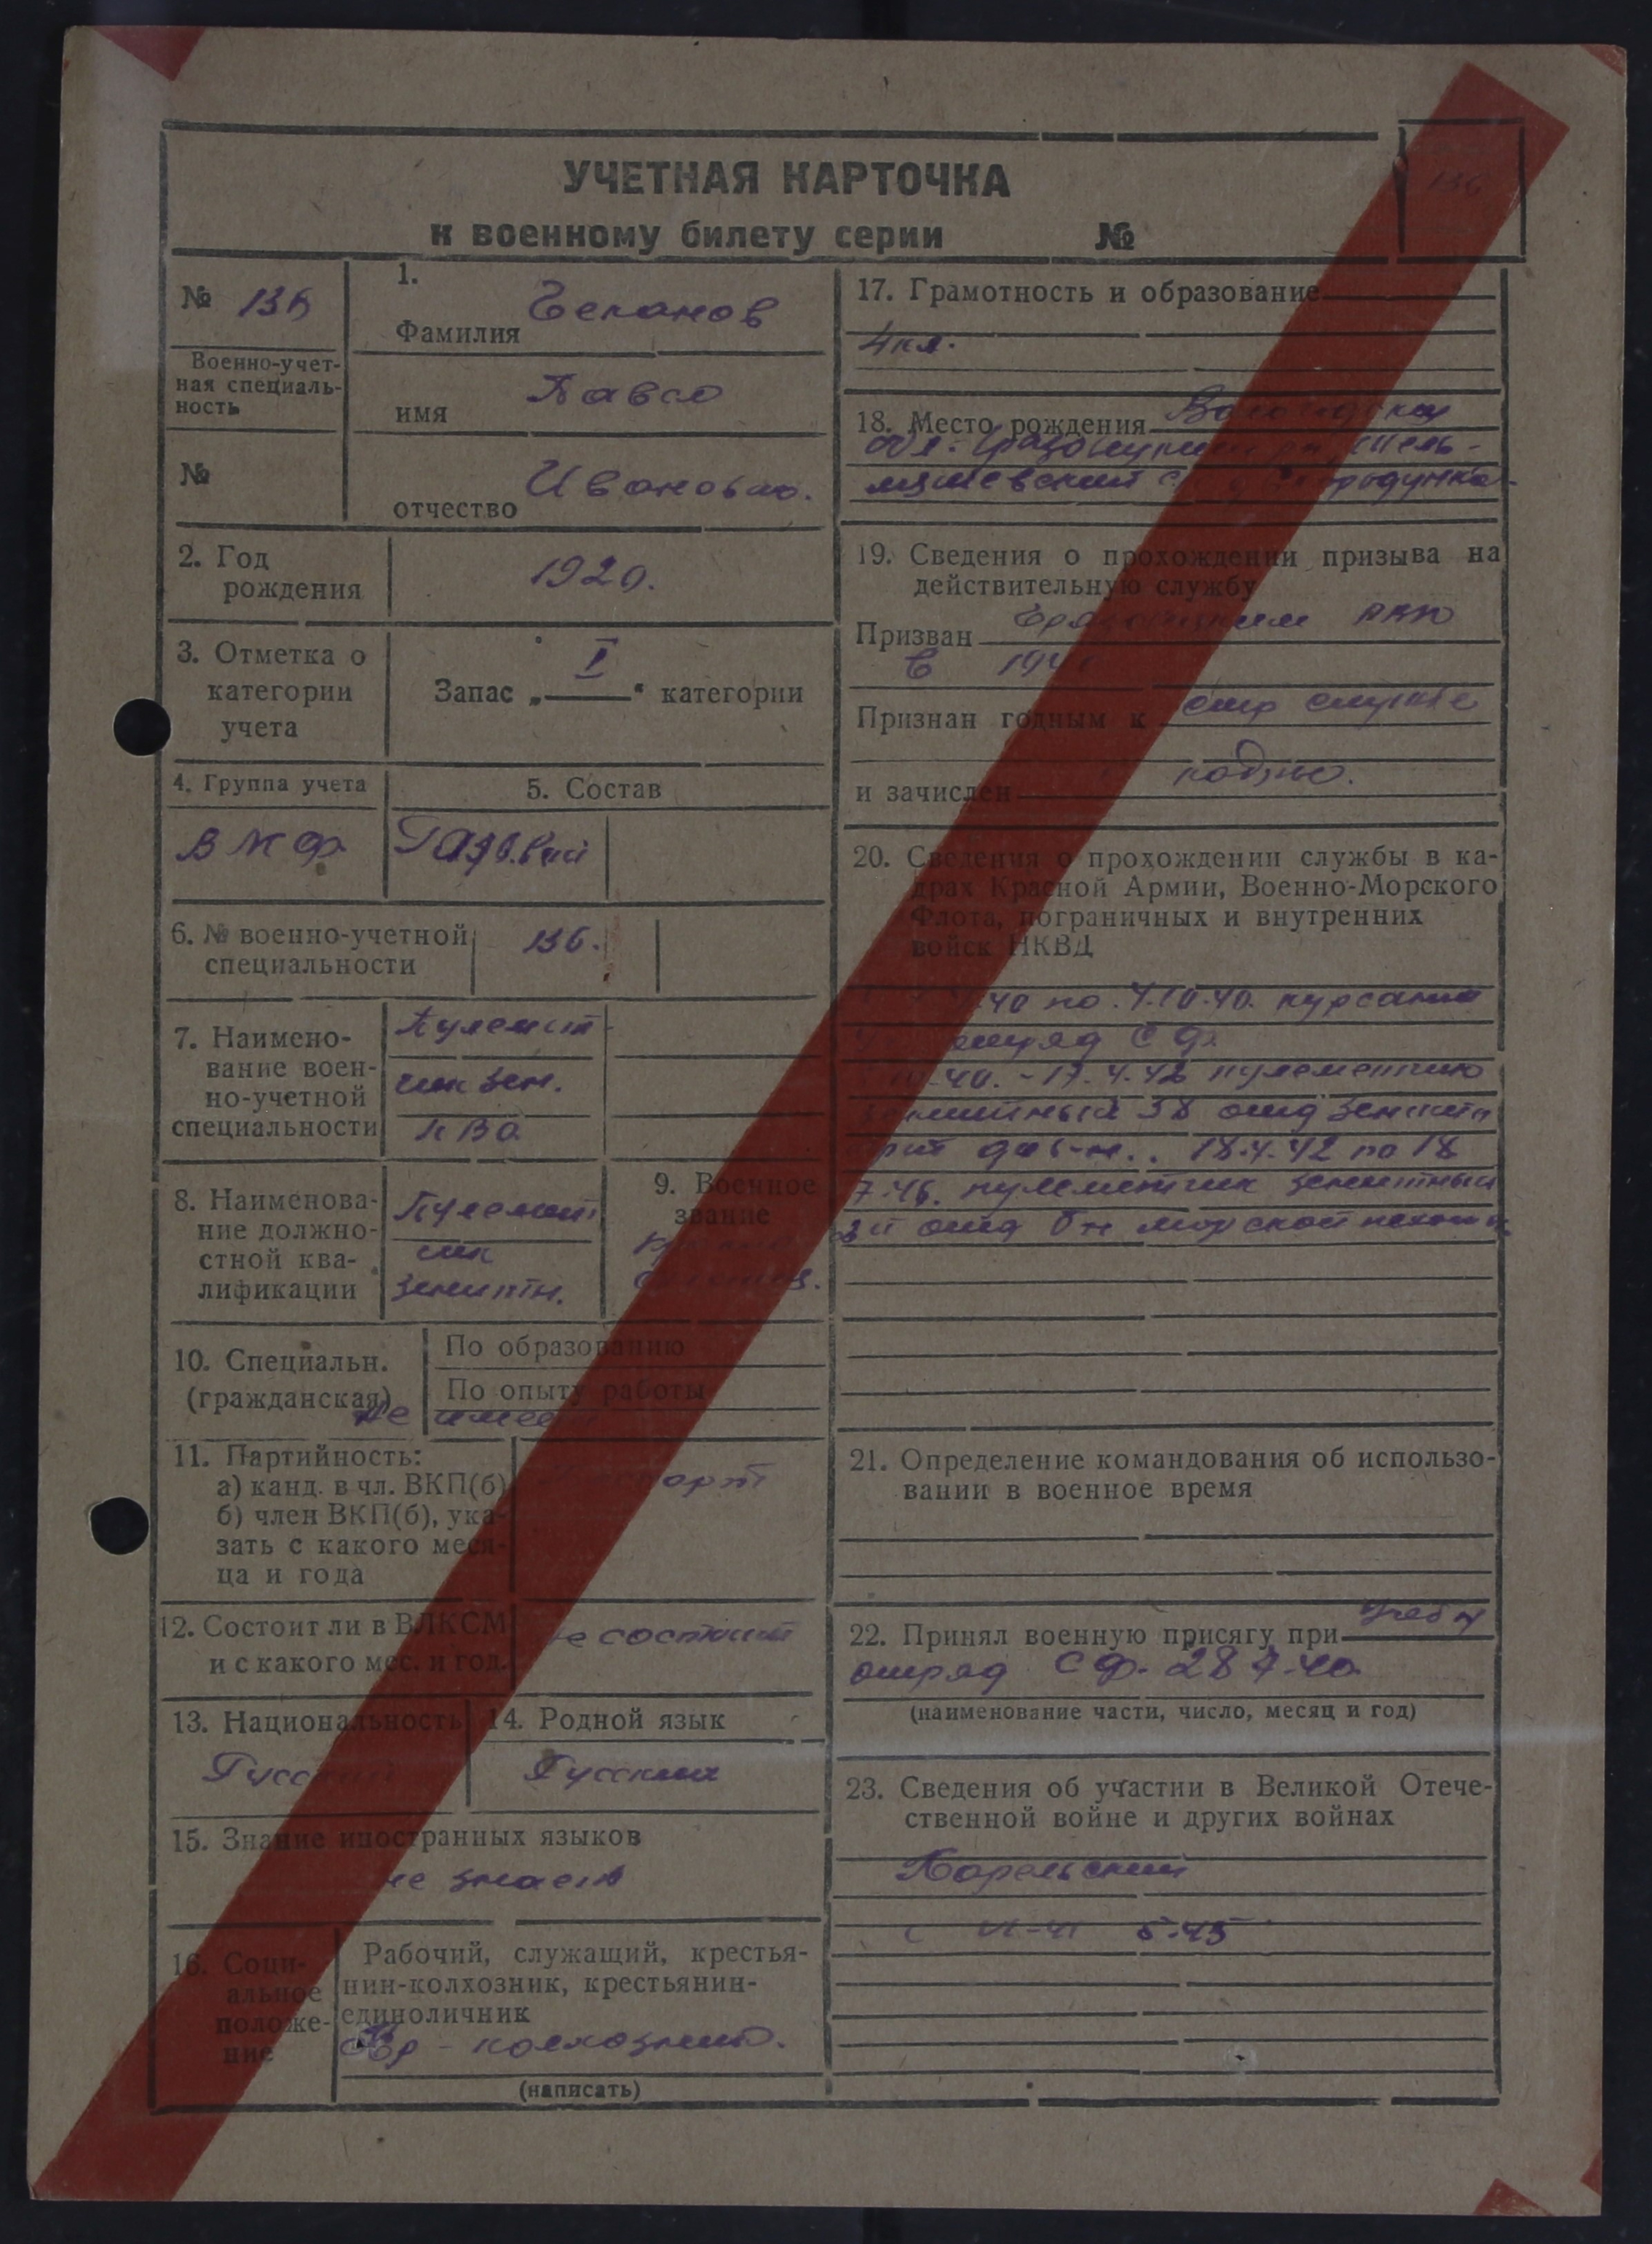 УЧЕТНАЯ КАРТОЧКА
к военному билету серии №
136
№ 136
Военно-учет-
ная специаль-
ность
№
1.
Фамилия
имя
отчество Иванович.
2. Год
рождения
1920.
3. Отметка о
категории
учета
Запас „ I " категории
4. Группа учета
ВМФ
5. Состав
6. № военно-учетной
специальности
136.
7. Наимено-
вание воен-
но-учетной
специальности
Пулемет-
чик зен.
8. Наименова-
ние должно-
стной ква-
лификации
Пулемет
чик
зенитн.
9. Военное
звание
10. Специальн.
(гражданская)
По образованию
По опыту работы
не имеет
11. Партийность:
а) канд. в чл. ВКП(б)
б) член ВКП(б), ука-
зать с какого меся-
ца и года
12. Состоит ли в ВЛКСМ
и с какого мес. и год.
не состоит
13. Национальность
Русский
14. Родной язык
Русский
15. Знание иностранных языков
не знает
16. Соци-
альное
положе-
ние
Рабочий, служащий, крестья-
нин-колхозник, крестьянин-
единоличник
Кр - колхозник.
(написать)
17. Грамотность и образование
4 кл.
18. Место рождения Вологодская
обл.
19. Сведения о прохождении призыва на
действительную службу
Призван РВК
в 1940
Признан годным к стр службе
и зачислен
20. Сведения о прохождении службы в ка-
драх Красной Армии, Военно-Морского
Флота, пограничных и внутренних
войск НКВД
40 по 7.10.40. курсант
отряд СФ
40. - 17.4.42 пулеметчик
зенитный 38 отд зенитн
18.4.42 по 18
7.46. пулеметчик зенитный
отд бн морской пехоты
21. Определение командования об использо-
вании в военное время
22. Принял военную присягу при учебн
отряд СФ. 28 7.40
(наименование части, число, месяц и год)
23. Сведения об участии в Великой Отече-
ственной войне и других войнах
Карельский
с VI-41 5-45